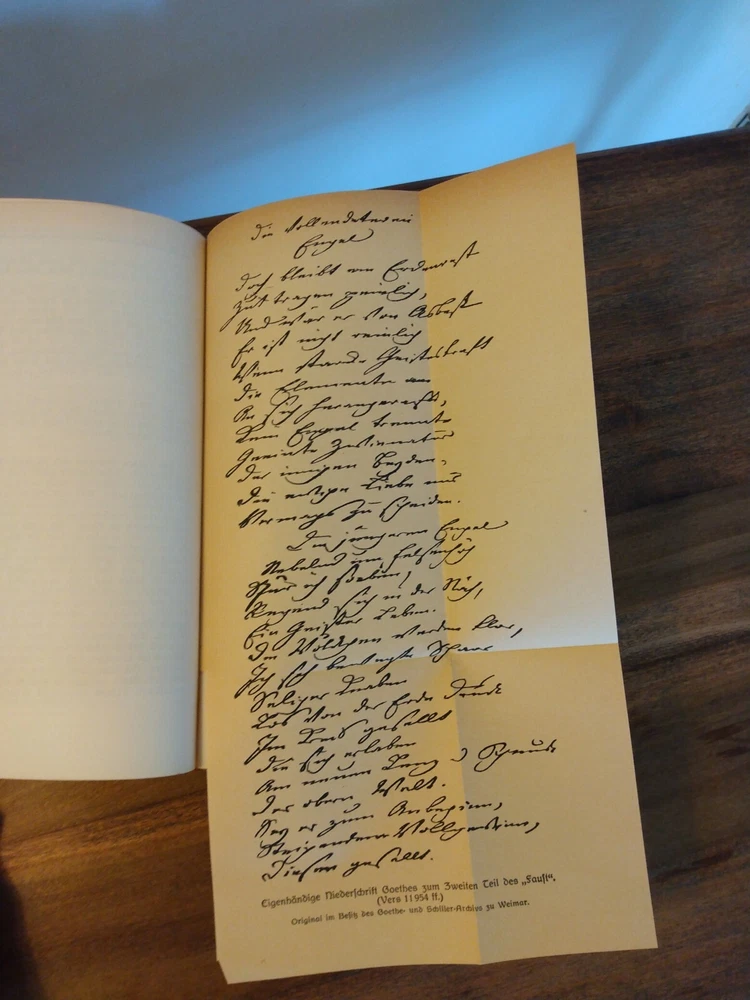 Die Vollendeteren
Engel
Uns bleibt ein Erdenrest
zu tragen peinlich,
Und wär er von Asbest
Er ist nicht reinlich
Wenn starcke Geisteskraft
Die Elemente
An sich herangerafft,
Kein Engel trennte
Geeinte Zwienatur
Der innigen Beyden,
Die ewige Liebe nur
Vermags zu scheiden.
Die jüngeren Engel
Nebelnd um Felsenhöh
Spür ich soeben,
Regend sich in der Näh,
Ein Geister Leben.
Die Wölckchen werden klar,
Ich seh bewegte Schaar
Seliger Knaben
Los von der Erde Druck
Im Kreis gesellt
Die sich erlaben
Am neuen Lenz u Schmuck
Der obern Welt.
Sey er zum Anbeginn,
Steigendem Vollgewinn,
Diesen gesellt.
Eigenhändige Niederschrift Goethes zum Zweiten Teil des „Faust“.
(Vers 11954 ff.)
Original im Besitz des Goethe- und Schiller-Archivs zu Weimar.